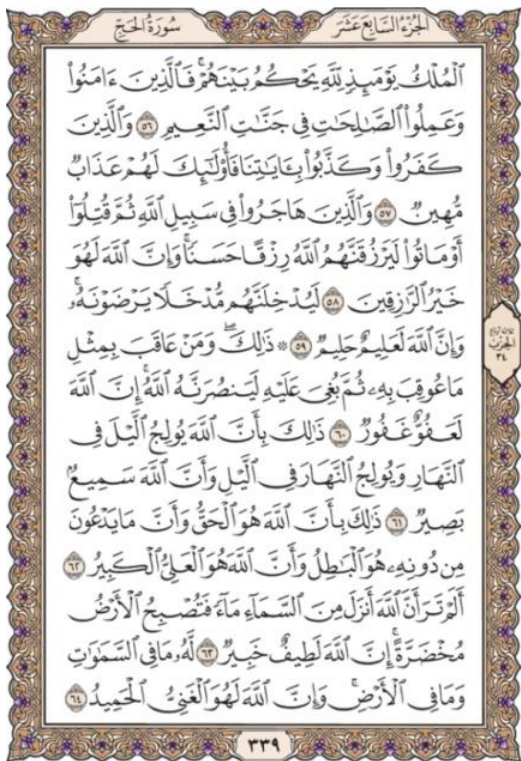 الجُزْءُ السَّابِعُ عَشَرَ
سُورَةُ الحَجِّ
ٱلْمُلْكُ يَوْمَئِذٍ لِّلَّهِ يَحْكُمُ بَيْنَهُمْۚ فَٱلَّذِينَ ءَامَنُوا۟
وَعَمِلُوا۟ ٱلصَّٰلِحَٰتِ فِى جَنَّٰتِ ٱلنَّعِيمِ ٥٦ وَٱلَّذِينَ
كَفَرُوا۟ وَكَذَّبُوا۟ بِـَٔايَٰتِنَا فَأُو۟لَٰٓئِكَ لَهُمْ عَذَابٌ
مُّهِينٌ ٥٧ وَٱلَّذِينَ هَاجَرُوا۟ فِى سَبِيلِ ٱللَّهِ ثُمَّ قُتِلُوٓا۟
أَوْ مَاتُوا۟ لَيَرْزُقَنَّهُمُ ٱللَّهُ رِزْقًا حَسَنًاۚ وَإِنَّ ٱللَّهَ لَهُوَ
خَيْرُ ٱلرَّٰزِقِينَ ٥٨ لَيُدْخِلَنَّهُم مُّدْخَلًا يَرْضَوْنَهُۥۚ
وَإِنَّ ٱللَّهَ لَعَلِيمٌ حَلِيمٌ ٥٩ ۞ ذَٰلِكَۖ وَمَنْ عَاقَبَ بِمِثْلِ
مَا عُوقِبَ بِهِۦ ثُمَّ بُغِىَ عَلَيْهِ لَيَنصُرَنَّهُ ٱللَّهُۚ إِنَّ ٱللَّهَ
لَعَفُوٌّ غَفُورٌ ٦٠ ذَٰلِكَ بِأَنَّ ٱللَّهَ يُولِجُ ٱلَّيْلَ فِى
ٱلنَّهَارِ وَيُولِجُ ٱلنَّهَارَ فِى ٱلَّيْلِ وَأَنَّ ٱللَّهَ سَمِيعٌۢ
بَصِيرٌ ٦١ ذَٰلِكَ بِأَنَّ ٱللَّهَ هُوَ ٱلْحَقُّ وَأَنَّ مَا يَدْعُونَ
مِن دُونِهِۦ هُوَ ٱلْبَٰطِلُ وَأَنَّ ٱللَّهَ هُوَ ٱلْعَلِىُّ ٱلْكَبِيرُ ٦٢
أَلَمْ تَرَ أَنَّ ٱللَّهَ أَنزَلَ مِنَ ٱلسَّمَآءِ مَآءً فَتُصْبِحُ ٱلْأَرْضُ
مُخْضَرَّةًۗ إِنَّ ٱللَّهَ لَطِيفٌ خَبِيرٌ ٦٣ لَّهُۥ مَا فِى ٱلسَّمَٰوَٰتِ
وَمَا فِى ٱلْأَرْضِۗ وَإِنَّ ٱللَّهَ لَهُوَ ٱلْغَنِىُّ ٱلْحَمِيدُ ٦٤
الحزب
٣٤
٣٣٩